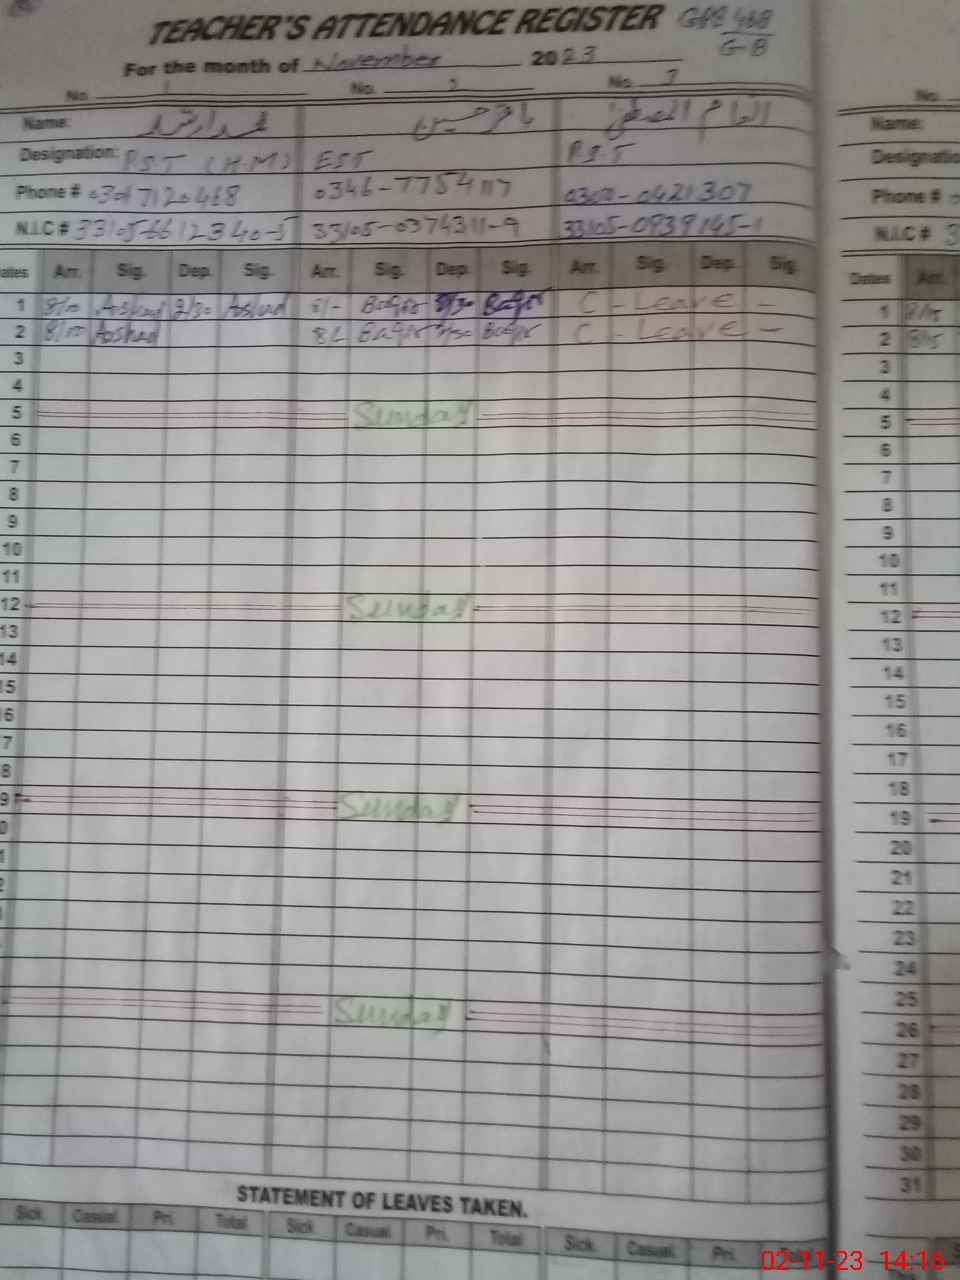 TEACHER'S ATTENDANCE REGISTER GPS 468
G-B
For the month of November 2023
No. 1 No. 2 No. 3 No.
Name: محمد ارشد باقر حسین Name:
Designation: P.S.T (H.M) EST P.S.T Designatio
Phone # 0346-7754117 0303-0421307 Phone #
N.I.C # 33105-6612340-5 33105-0374311-9 33105-0939145-1 N.I.C # 3
ates Arr. Sig. Dep. Sig. Arr. Sig. Dep. Sig. Arr. Sig. Dep. Sig. Dates Arr.
1 8/00 Arshad 2/30 Arshad 8/- Baqir 2/30 Baqir C - Leave - 1 8/15
2 8/00 Arshad Baqir 2/30 Baqir C - Leave - 2 8/15
3 3
4 4
5 Sunday 5
6 6
7 7
8 8
9 9
10 10
11 11
12 Sunday 12
13 13
14 14
15 15
6 16
7 17
8 18
9 Sunday 19
0 20
1 21
2 22
23
24
25
Sunday 26
27
28
29
30
31
STATEMENT OF LEAVES TAKEN.
Sick. Casual. Pri. Total Sick. Casual. Pri. Total Sick. Casual. Pri. Total
02-11-23 14:16